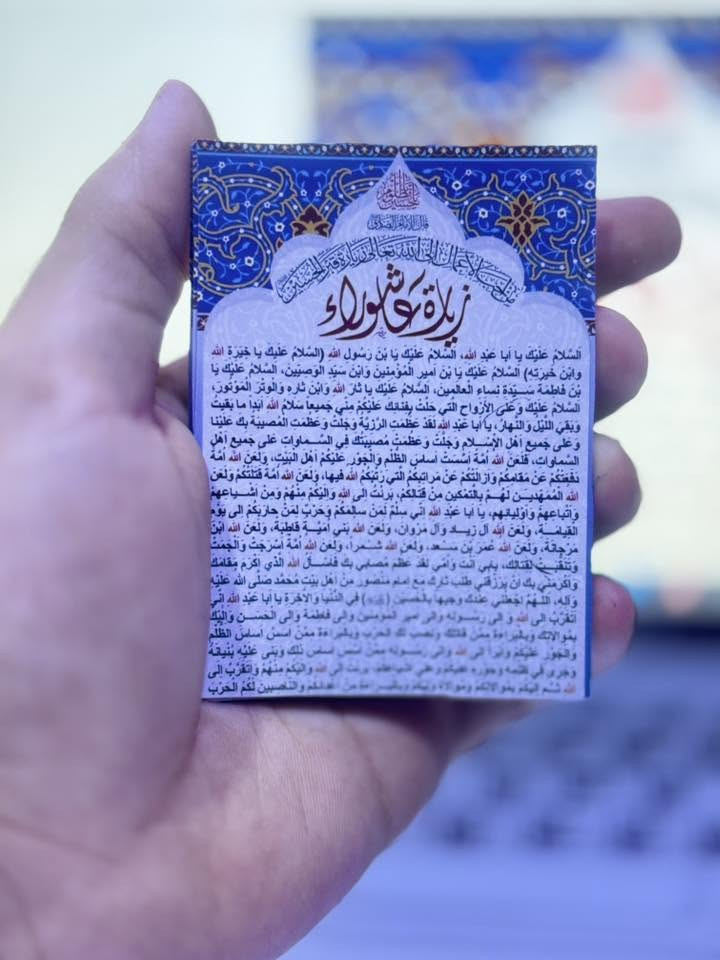 قال الإمام الصادق
من أحب الأعمال إلى الله تعالى زيارة قبر الحسين
زيارة عاشوراء
السَّلامُ عَلَيْكَ يا اَبا عَبْدِ اللهِ، السَّلامُ عَلَيْكَ يَا بْنَ رَسُولِ اللهِ (السَّلامُ عَلَيكَ يا خِيَرَةَ اللهِ
وابْنَ خيرَتِه) السَّلامُ عَلَيْكَ يَا بْنَ اَميرِ الْمُؤْمِنينَ وَابْنَ سَيِّدِ الْوَصِيّينَ، السَّلامُ عَلَيْكَ يَا
بْنَ فاطِمَةَ سَيِّدَةِ نِساءِ الْعالَمينَ، السَّلامُ عَلَيْكَ يا ثارَ اللهِ وَابْنَ ثارِهِ وَالْوِتْرَ الْمَوْتُورَ،
السَّلامُ عَلَيْكَ وَعَلَى الاَْرْواحِ الَّتي حَلَّتْ بِفِنائِكَ عَلَيْكُمْ مِنّي جَميعاً سَلامُ اللهِ اَبَداً ما بَقيتُ
وَبَقِيَ اللَّيْلُ وَالنَّهارُ، يا اَبا عَبْدِ اللهِ لَقَدْ عَظُمَتِ الرَّزِيَّةُ وَجَلَّتْ وَعَظُمَتِ الْمُصيبَةُ بِكَ عَلَيْنا
وَعَلى جَميعِ اَهْلِ الاِْسْلامِ وَجَلَّتْ وَعَظُمَتْ مُصيبَتُكَ فِي السَّماواتِ عَلى جَميعِ اَهْلِ
السَّماواتِ، فَلَعَنَ اللهُ اُمَّةً اَسَّسَتْ اَساسَ الظُّلْمِ وَالْجَوْرِ عَلَيْكُمْ اَهْلَ الْبَيْتِ، وَلَعَنَ اللهُ اُمَّةً
دَفَعَتْكُمْ عَنْ مَقامِكُمْ وَاَزالَتْكُمْ عَنْ مَراتِبِكُمُ الَّتي رَتَّبَكُمُ اللهُ فيها، وَلَعَنَ اللهُ اُمَّةً قَتَلَتْكُمْ وَلَعَنَ
اللهُ الْمُمَهِّدينَ لَهُمْ بِالتَّمْكينِ مِنْ قِتالِكُمْ، بَرِئْتُ اِلَى اللهِ وَاِلَيْكُمْ مِنْهُمْ وَمِنْ اَشْياعِهِمْ
وَاَتْباعِهِمْ وَاَوْلِيائِهِم، يا اَبا عَبْدِ اللهِ اِنّي سِلْمٌ لِمَنْ سالَمَكُمْ وَحَرْبٌ لِمَنْ حارَبَكُمْ اِلى يَوْمِ
الْقِيامَةِ، وَلَعَنَ اللهُ آلَ زِياد وَآلَ مَرْوانَ، وَلَعَنَ اللهُ بَني اُمَيَّةَ قاطِبَةً، وَلَعَنَ اللهُ ابْنَ
مَرْجانَةَ، وَلَعَنَ اللهُ عُمَرَ بْنَ سَعْد، وَلَعَنَ اللهُ شِمْراً، وَلَعَنَ اللهُ اُمَّةً اَسْرَجَتْ وَاَلْجَمَتْ
وَتَنَقَّبَتْ لِقِتالِكَ، بِاَبي اَنْتَ وَاُمّي لَقَدْ عَظُمَ مُصابي بِكَ فَاَسْأَلُ اللهَ الَّذي اَكْرَمَ مَقامَكَ
وَاَكْرَمَني بِكَ اَنْ يَرْزُقَني طَلَبَ ثارِكَ مَعَ اِمام مَنْصُور مِنْ اَهْلِ بَيْتِ مُحَمَّد صَلَّى اللهُ عَلَيْهِ
وَآلِهِ، اَللّـهُمَّ اجْعَلْني عِنْدَكَ وَجيهاً بِالْحُسَيْنِ في الدُّنْيا وَالاْخِرَةِ يا اَبا عَبْدِ اللهِ اِنّي
اَتَقَرَّبُ اِلى اللهِ وَ اِلى رَسُولِهِ وَاِلى اميرِ الْمُؤْمِنينَ وَاِلى فاطِمَةَ وَاِلى الْحَسَنِ وَاِلَيْكَ
بِمُوالاتِكَ وَبِالْبَراءَةِ مِمَّنْ قاتَلَكَ وَنَصَبَ لَكَ الْحَرْبَ وَبِالْبَراءَةِ مِمَّنْ اَسَّسَ اَساسَ الظُّلْمِ
وَالْجَوْرِ عَلَيْكُمْ وَاَبْرَأُ اِلَى اللهِ وَاِلى رَسُولِهِ مِمَّنْ اَسَّسَ اَساسَ ذلِكَ وَبَنى عَلَيْهِ بُنْيانَهُ
وَجَرى في ظُلْمِهِ وَجَوْرِهِ عَلَيْكُمْ وَعَلى اَشْياعِكُمْ، بَرِئْتُ اِلَى اللهِ وَاِلَيْكُمْ مِنْهُمْ وَاَتَقَرَّبُ اِلَى
اللهِ ثُمَّ اِلَيْكُمْ بِمُوالاتِكُمْ وَمُوالاةِ وَلِيِّكُمْ وَبِالْبَراءَةِ مِنْ اَعْدائِكُمْ وَالنّاصِبينَ لَكُمُ الْحَرْبَ